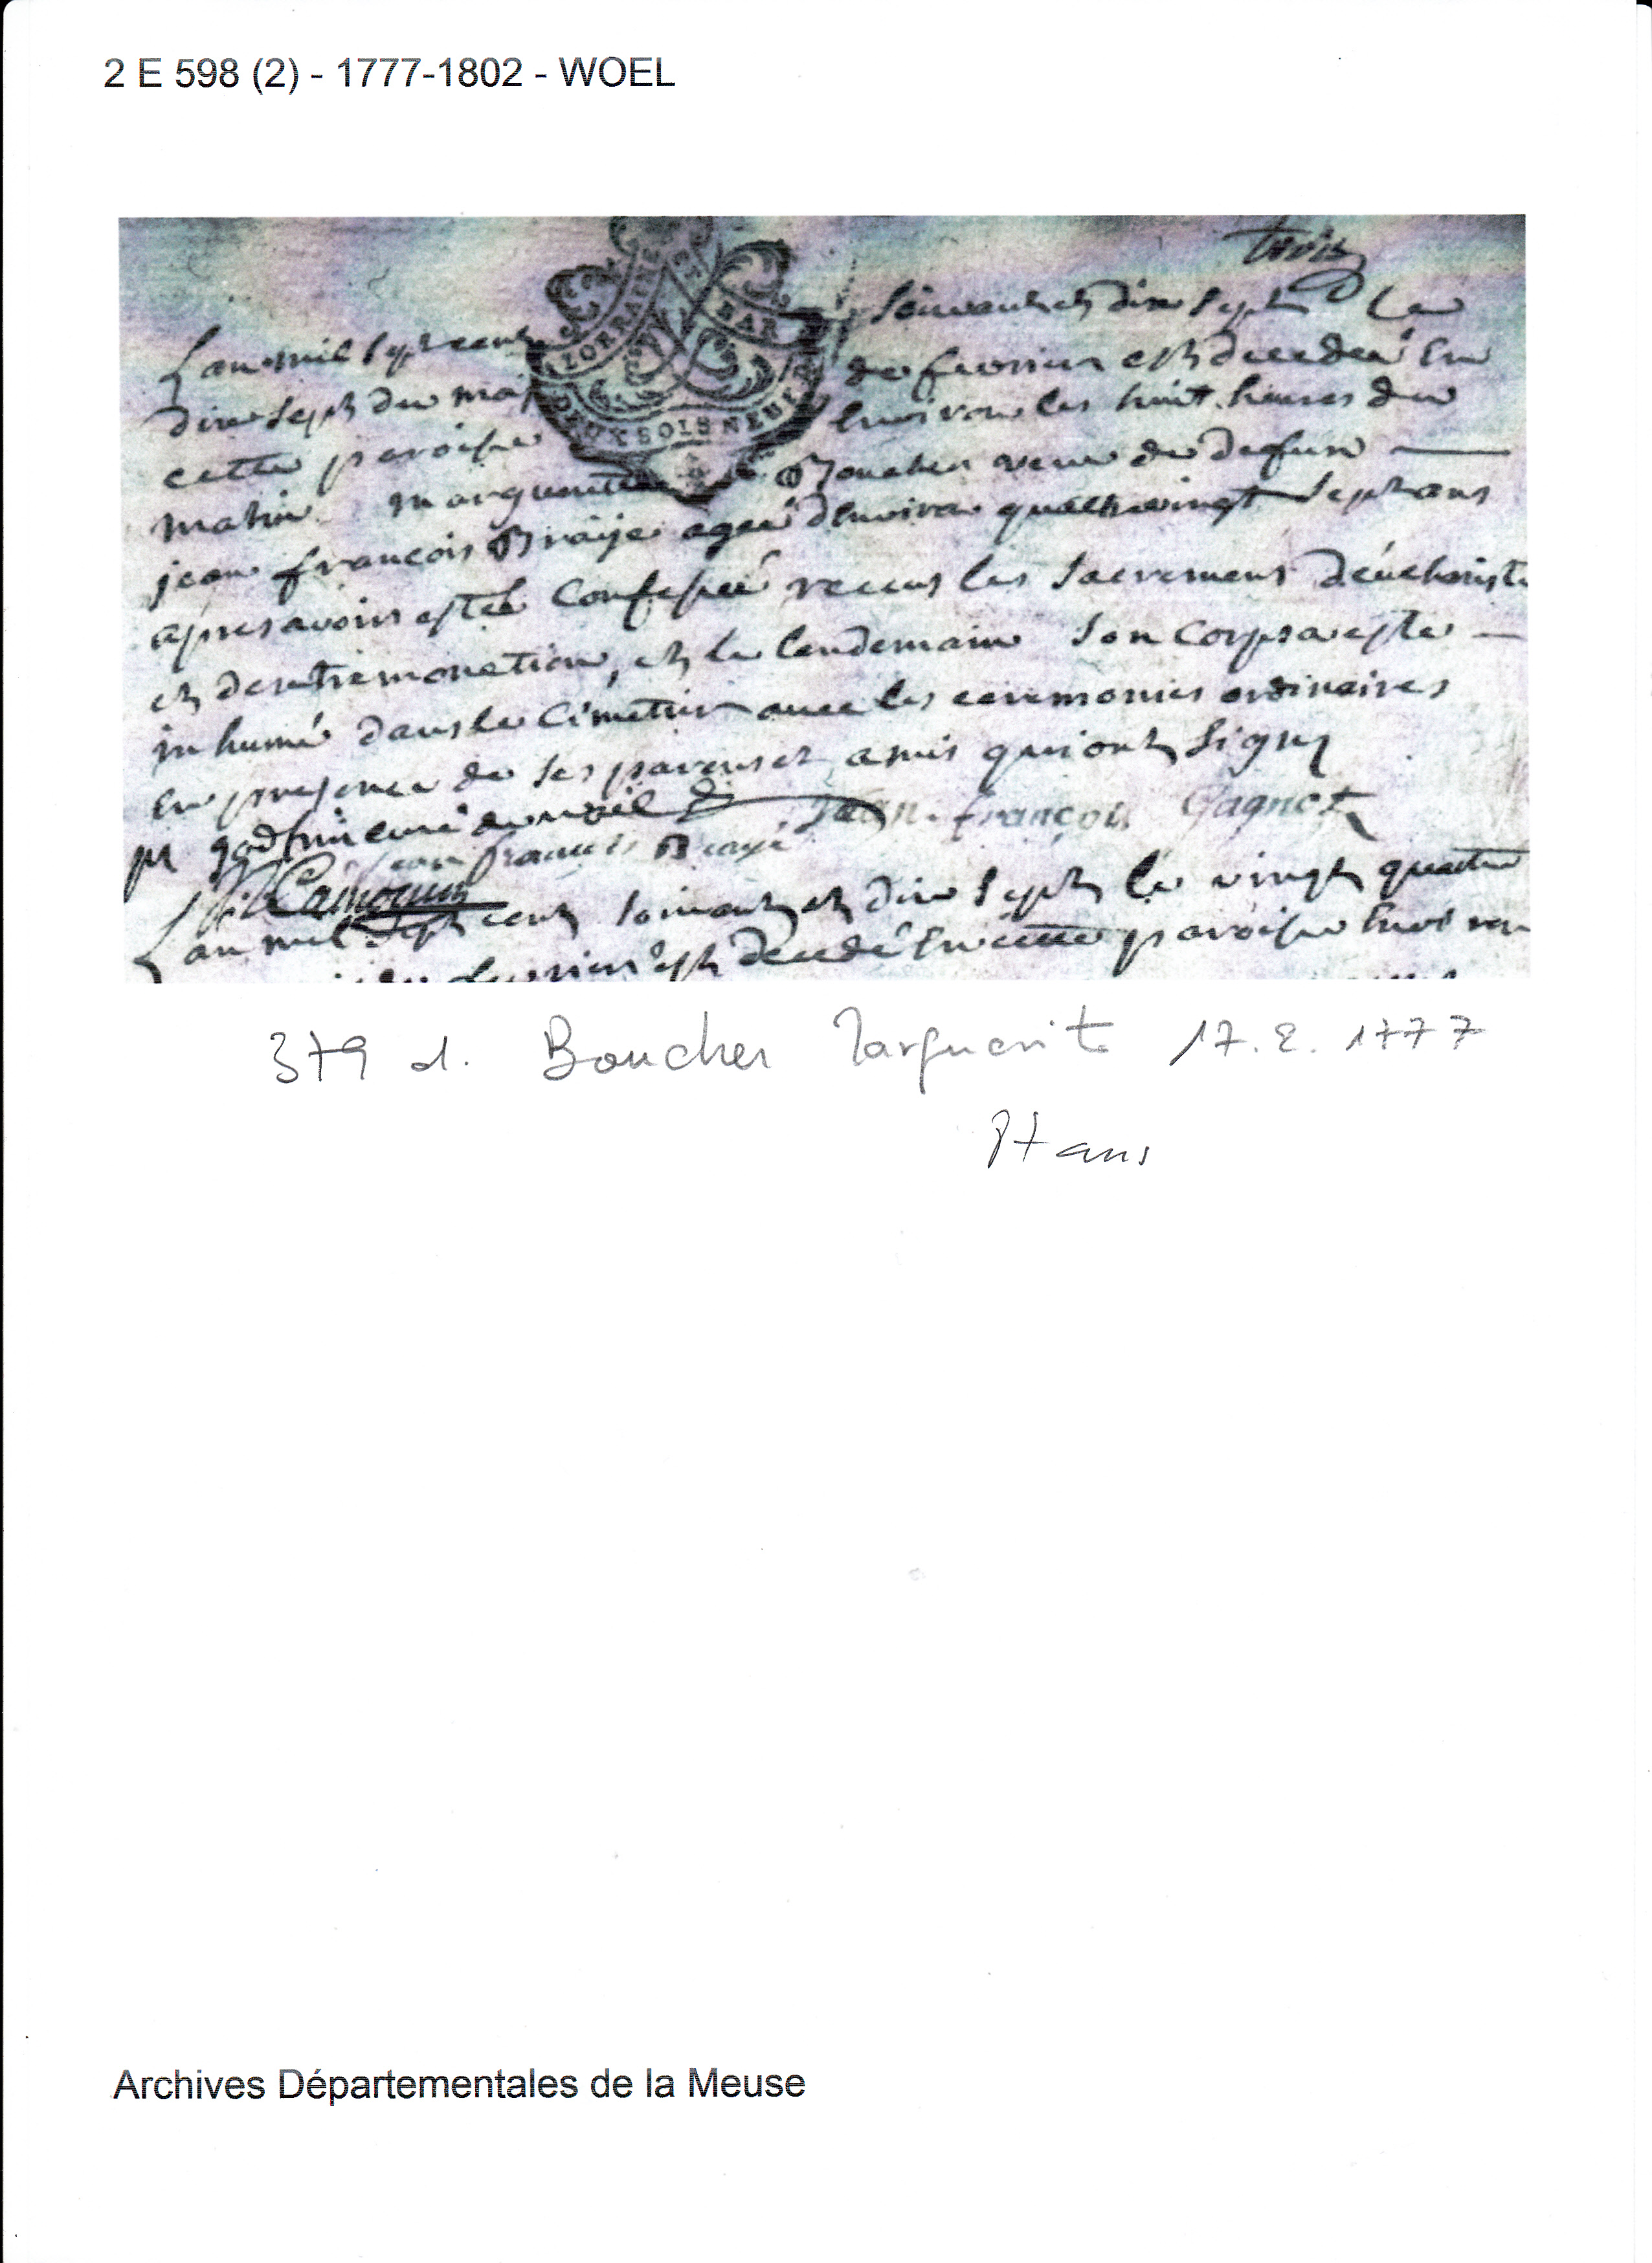 2 E 598 (2) - 1777-1802 - WOEL
trois
L'an mil sept cent soixante et dix sept Le
LORRAINE BAR
DEUX SOLS NEUF
dix sept du mois de fevrier est decedeé En
cette paroisse Environ les huit heures du
matin marguerite Boucher veuve de defun
jean francois Braije ageé d'Environ quattrevingt sept ans
apres avoir esteé Confesseé receus les sacremens d'éucharisti
et dextremonction, et le lendemain son corps a esté
inhumé dans le Cimetier avec les ceremonies ordinaires
En presence de ses parens et amis qui ont signez
godfrin curé de woël Jean francois Gagnot
Jean francois Brayé
Camonin
L'an mil sept cent soixante et dix sept le vingt quattre
fevrier est decedé En cette paroisse Environ
379 d. Boucher Marguerite 17.2.1777
87 ans
Archives Départementales de la Meuse